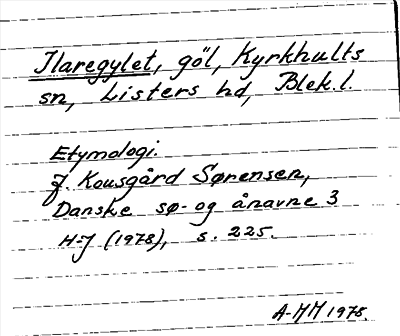 Ilaregylet, göl, Kyrkhults
sn, Listers hd, Blek. l.
Etymologi.
J. Kousgård Sørensen,
Danske sø- og ånavne 3
H-J (1978), s. 225.
A-MM 1978.